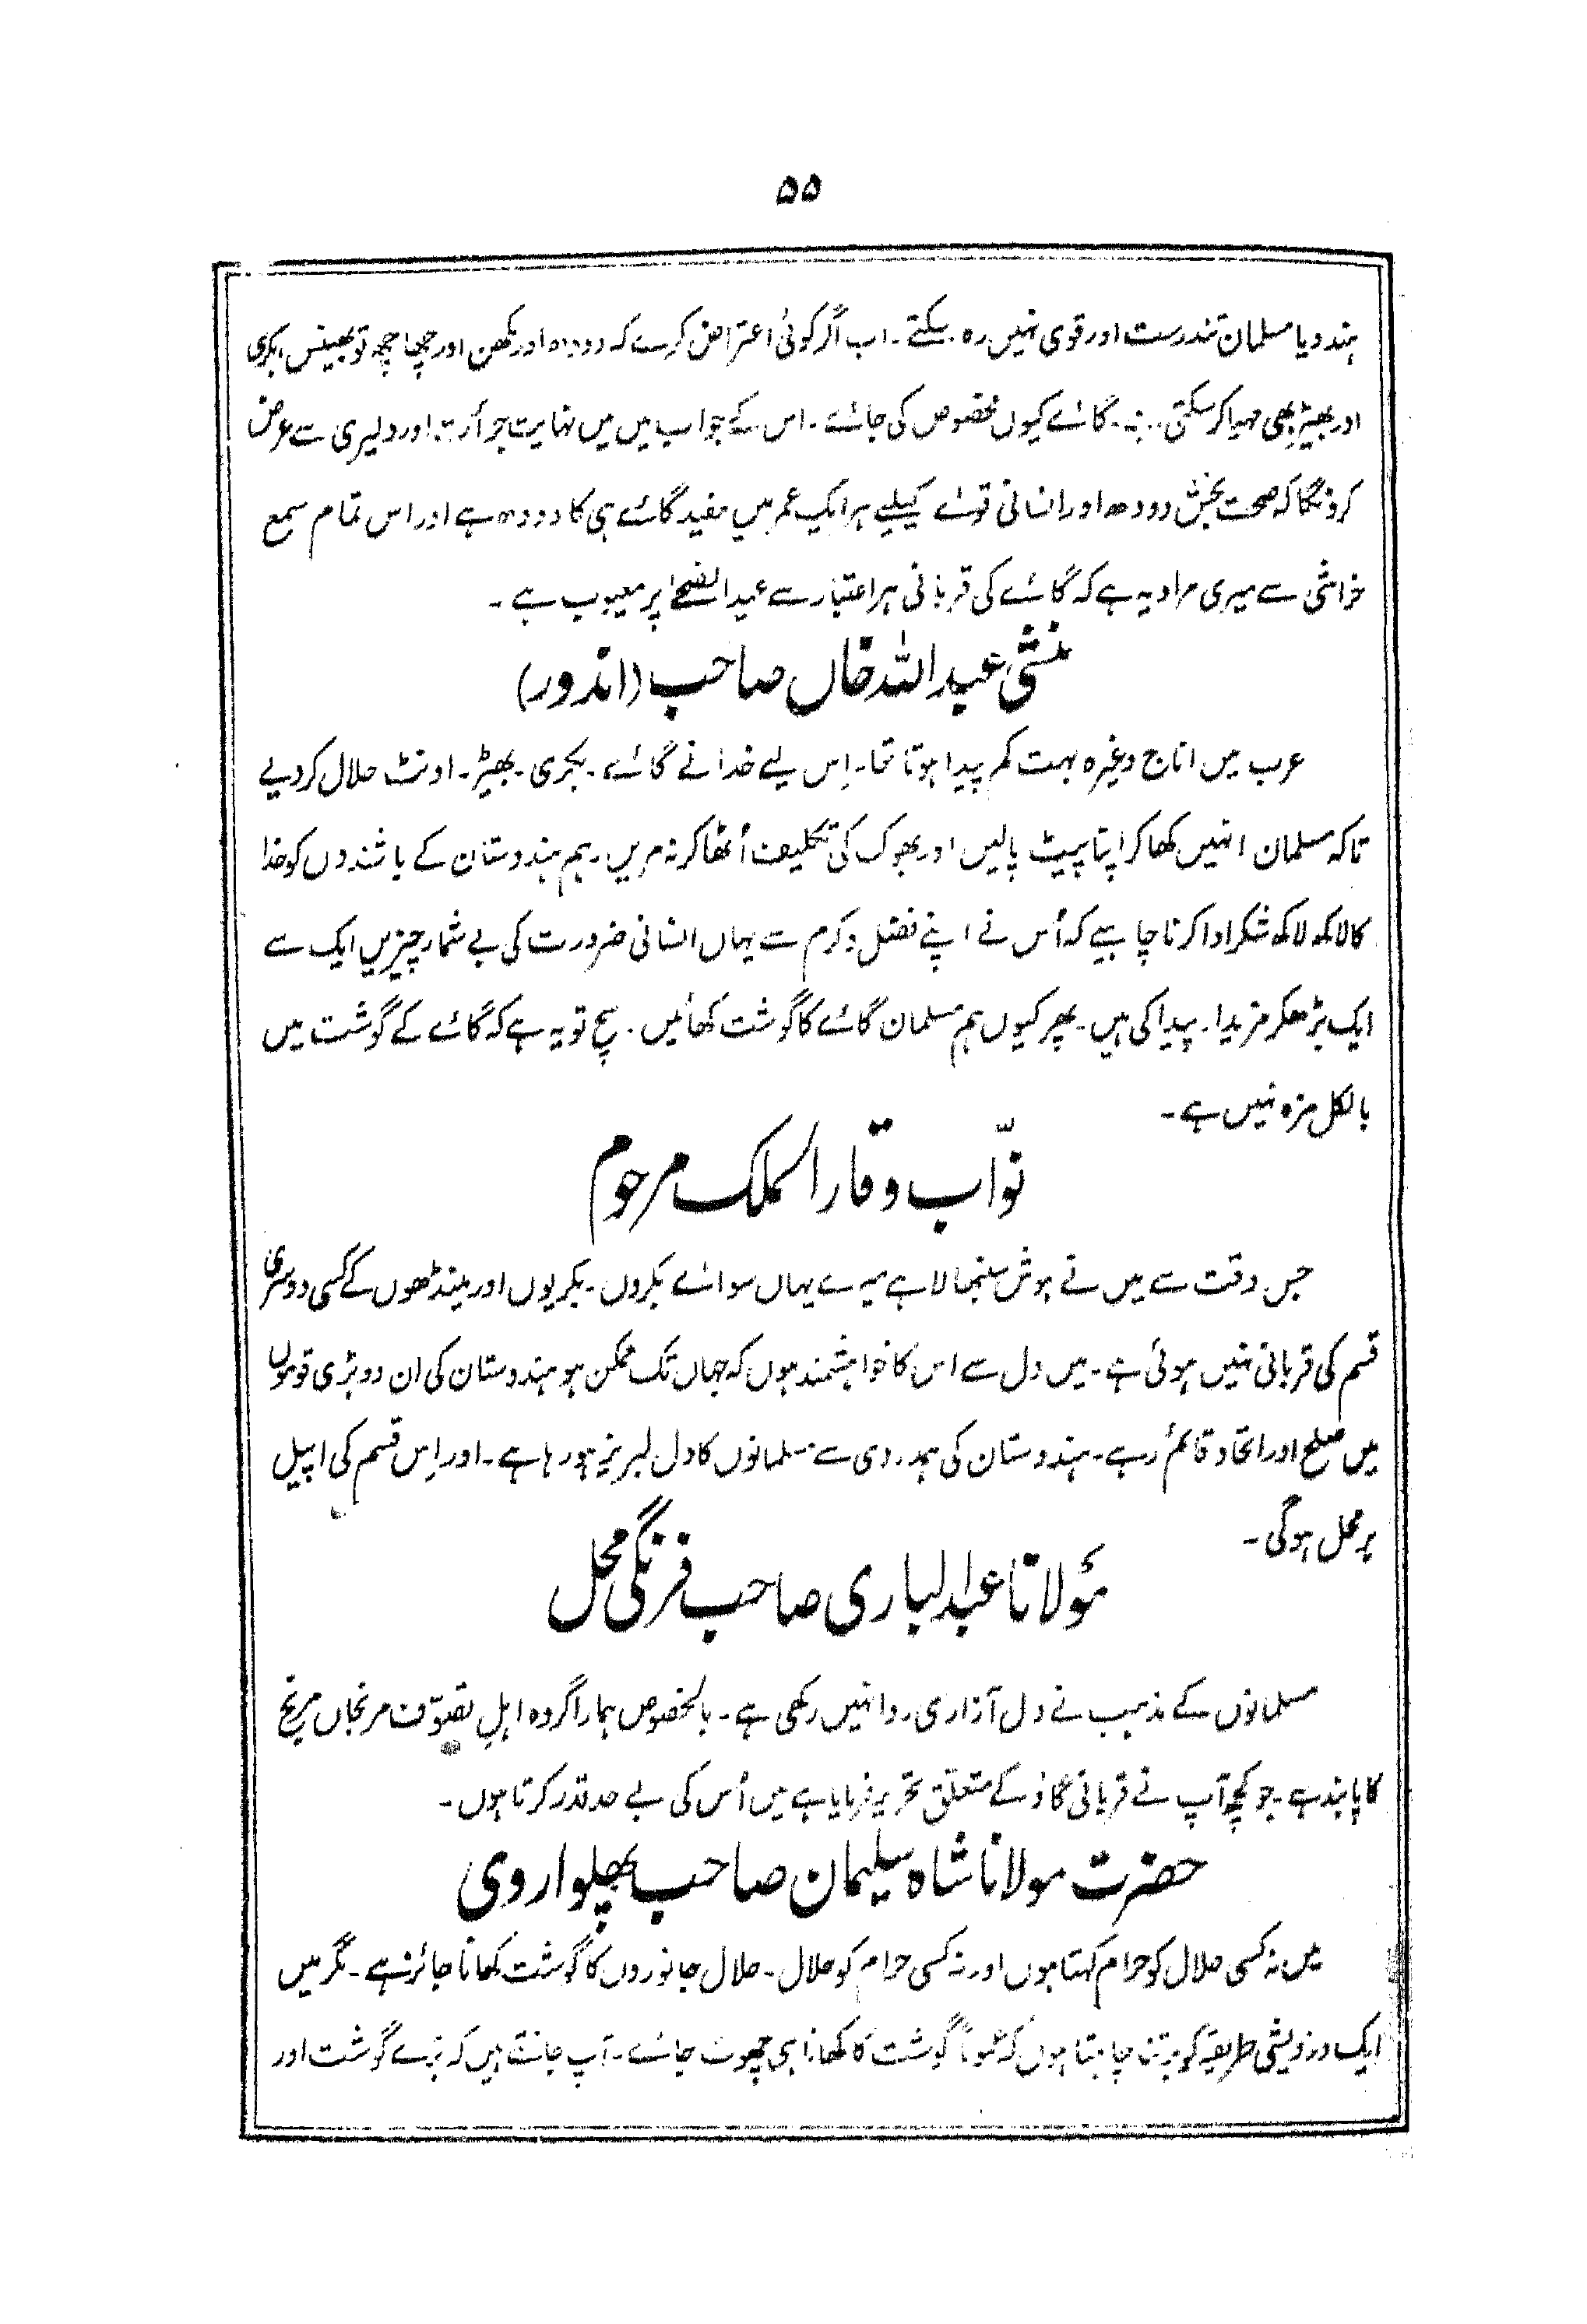 ۵۵
ہندو یا مسلمان تندرست اور قوی نہیں رہ سکتے ۔ اب اگر کوئی اعتراض کرے کہ دودھ اور مکھن اور چھاچھ تو بھینس بکری
اور بھیڑ بھی مہیا کر سکتی ہے ۔ گائے کیوں مخصوص کی جائے ۔ اس کے جواب میں میں نہایت جرأت اور دلیری سے عرض
کرونگا کہ صحت بخش دودھ اور انسانی قویٰ کیلیے ہر ایک عمر میں مفید گائے ہی کا دودھ ہے اور اس تمام سمع
خراشی سے میری مراد یہ ہے کہ گائے کی قربانی ہر اعتبار سے عید الضحیٰ پر معیوب ہے ۔
منشی عبد اللہ خاں صاحب (اندور)
عرب میں اناج وغیرہ بہت کم پیدا ہوتا تھا۔ اِس لیے خدا نے گائے ۔ بکری ۔ بھیڑ ۔ اونٹ حلال کر دیے
تاکہ مسلمان انہیں کھا کر اپنا پیٹ پالیں اور بھوک کی تکلیف اُٹھا کر نہ مریں ۔ ہم ہندوستان کے باشندوں کو خدا
کا لاکھ لاکھ شکر ادا کرنا چاہیے کہ اُس نے اپنے فضل و کرم سے یہاں انسانی ضرورت کی بے شمار چیزیں ایک سے
ایک بڑھکر مزیدار پیدا کی ہیں ۔ پھر کیوں ہم مسلمان گائے کا گوشت کھائیں ۔ سچ تو یہ ہے کہ گائے کے گوشت میں
بالکل مزہ نہیں ہے ۔
نوّاب وقار الملک مرحوم
جس وقت سے میں نے ہوش سنبھالا ہے میرے یہاں سوائے بکروں ۔ بکریوں اور مینڈھوں کے کسی دوسری
قسم کی قربانی نہیں ہوئی ہے ۔ میں دل سے اس کا خواہشمند ہوں کہ جہاں تک ممکن ہو ہندوستان کی ان دو بڑی قوموں
میں صلح اور اتحاد قائم رہے ۔ ہندوستان کی ہمدردی سے مسلمانوں کا دل لبریز ہو رہا ہے ۔ اور اِس قسم کی اپیل
بر محل ہوگی ۔
مولانا عبد الباری صاحب فرنگی محل
مسلمانوں کے مذہب نے دل آزاری روا نہیں رکھی ہے ۔ بالخصوص ہمارا گروہ اہلِ تصوّف مرنجاں مرنج
کا پابند ہے ۔ جو کچھ آپ نے قربانی گاؤ کے متعلّق تحریر فرمایا ہے میں اُس کی بے حد قدر کرتا ہوں ۔
حضرت مولانا شاہ سلیمان صاحب پھلواروی
میں نہ کسی حلال کو حرام کہتا ہوں اور نہ کسی حرام کو حلال ۔ حلال جانوروں کا گوشت کھانا جائز ہے ۔ مگر میں
ایک درویشی طریقہ کو برتنا چاہتا ہوں کہ عموماً گوشت کا کھانا ہی چھوٹ جائے ۔ آپ جانتے ہیں کہ نرے گوشت اور